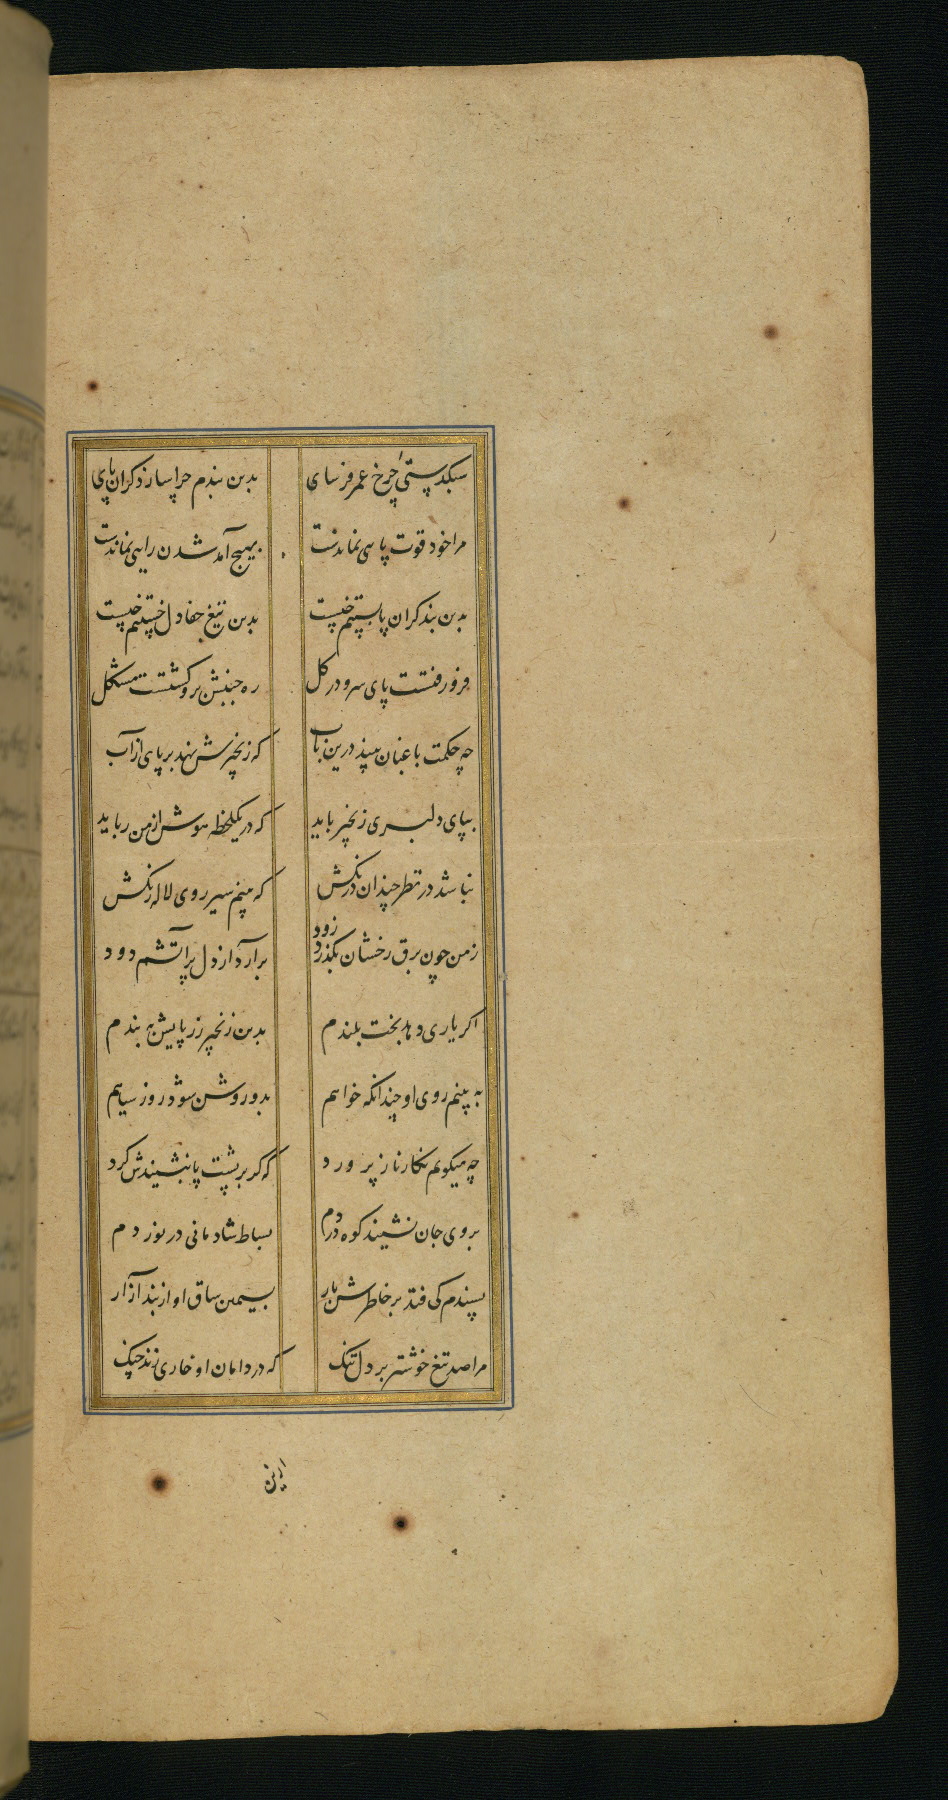 سبکدستی چرخ عمر فرسای بدین بندم چرا سازد کران پای
مرا خود قوت پایی نماندست بهیچ آمد شدن رایی نماندست
بدین بند کران پابستنم چیست بدین تیغ جفا دل خستنم چیست
فرو رفتست پای سرو در کل ره جنبش برو کشتست مشکل
چه حکمت باغبان بیند درین باب که زنجیرش نهد بر پای از آب
بپای دلبری زنجیر باید که در یکلحظه هوش از من رباید
نباشد در نظر چندان درنکش که بینم سیر روی لاله رنکش
ز من چون برق رخشان بکذرد زود برآرد از دل پرآتشم دود
اکر یاری دهد بخت بلندم بدین زنجیر زر پایش به بندم
به بینم روی او چندانکه خواهم بدو روشن شود روز سیاهم
چه میکویم نکار ناز پرورد که کر بر پشت پا بنشیندش کرد
بروی جان نشیند کوه دردم بساط شادمانی در نوردم
پسندم کی فتد بر خاطرش بار بسیمین ساق او از بند آزار
مرا صد تیغ خوشتر بر دل تنک که در دامان او خاری زند چنک